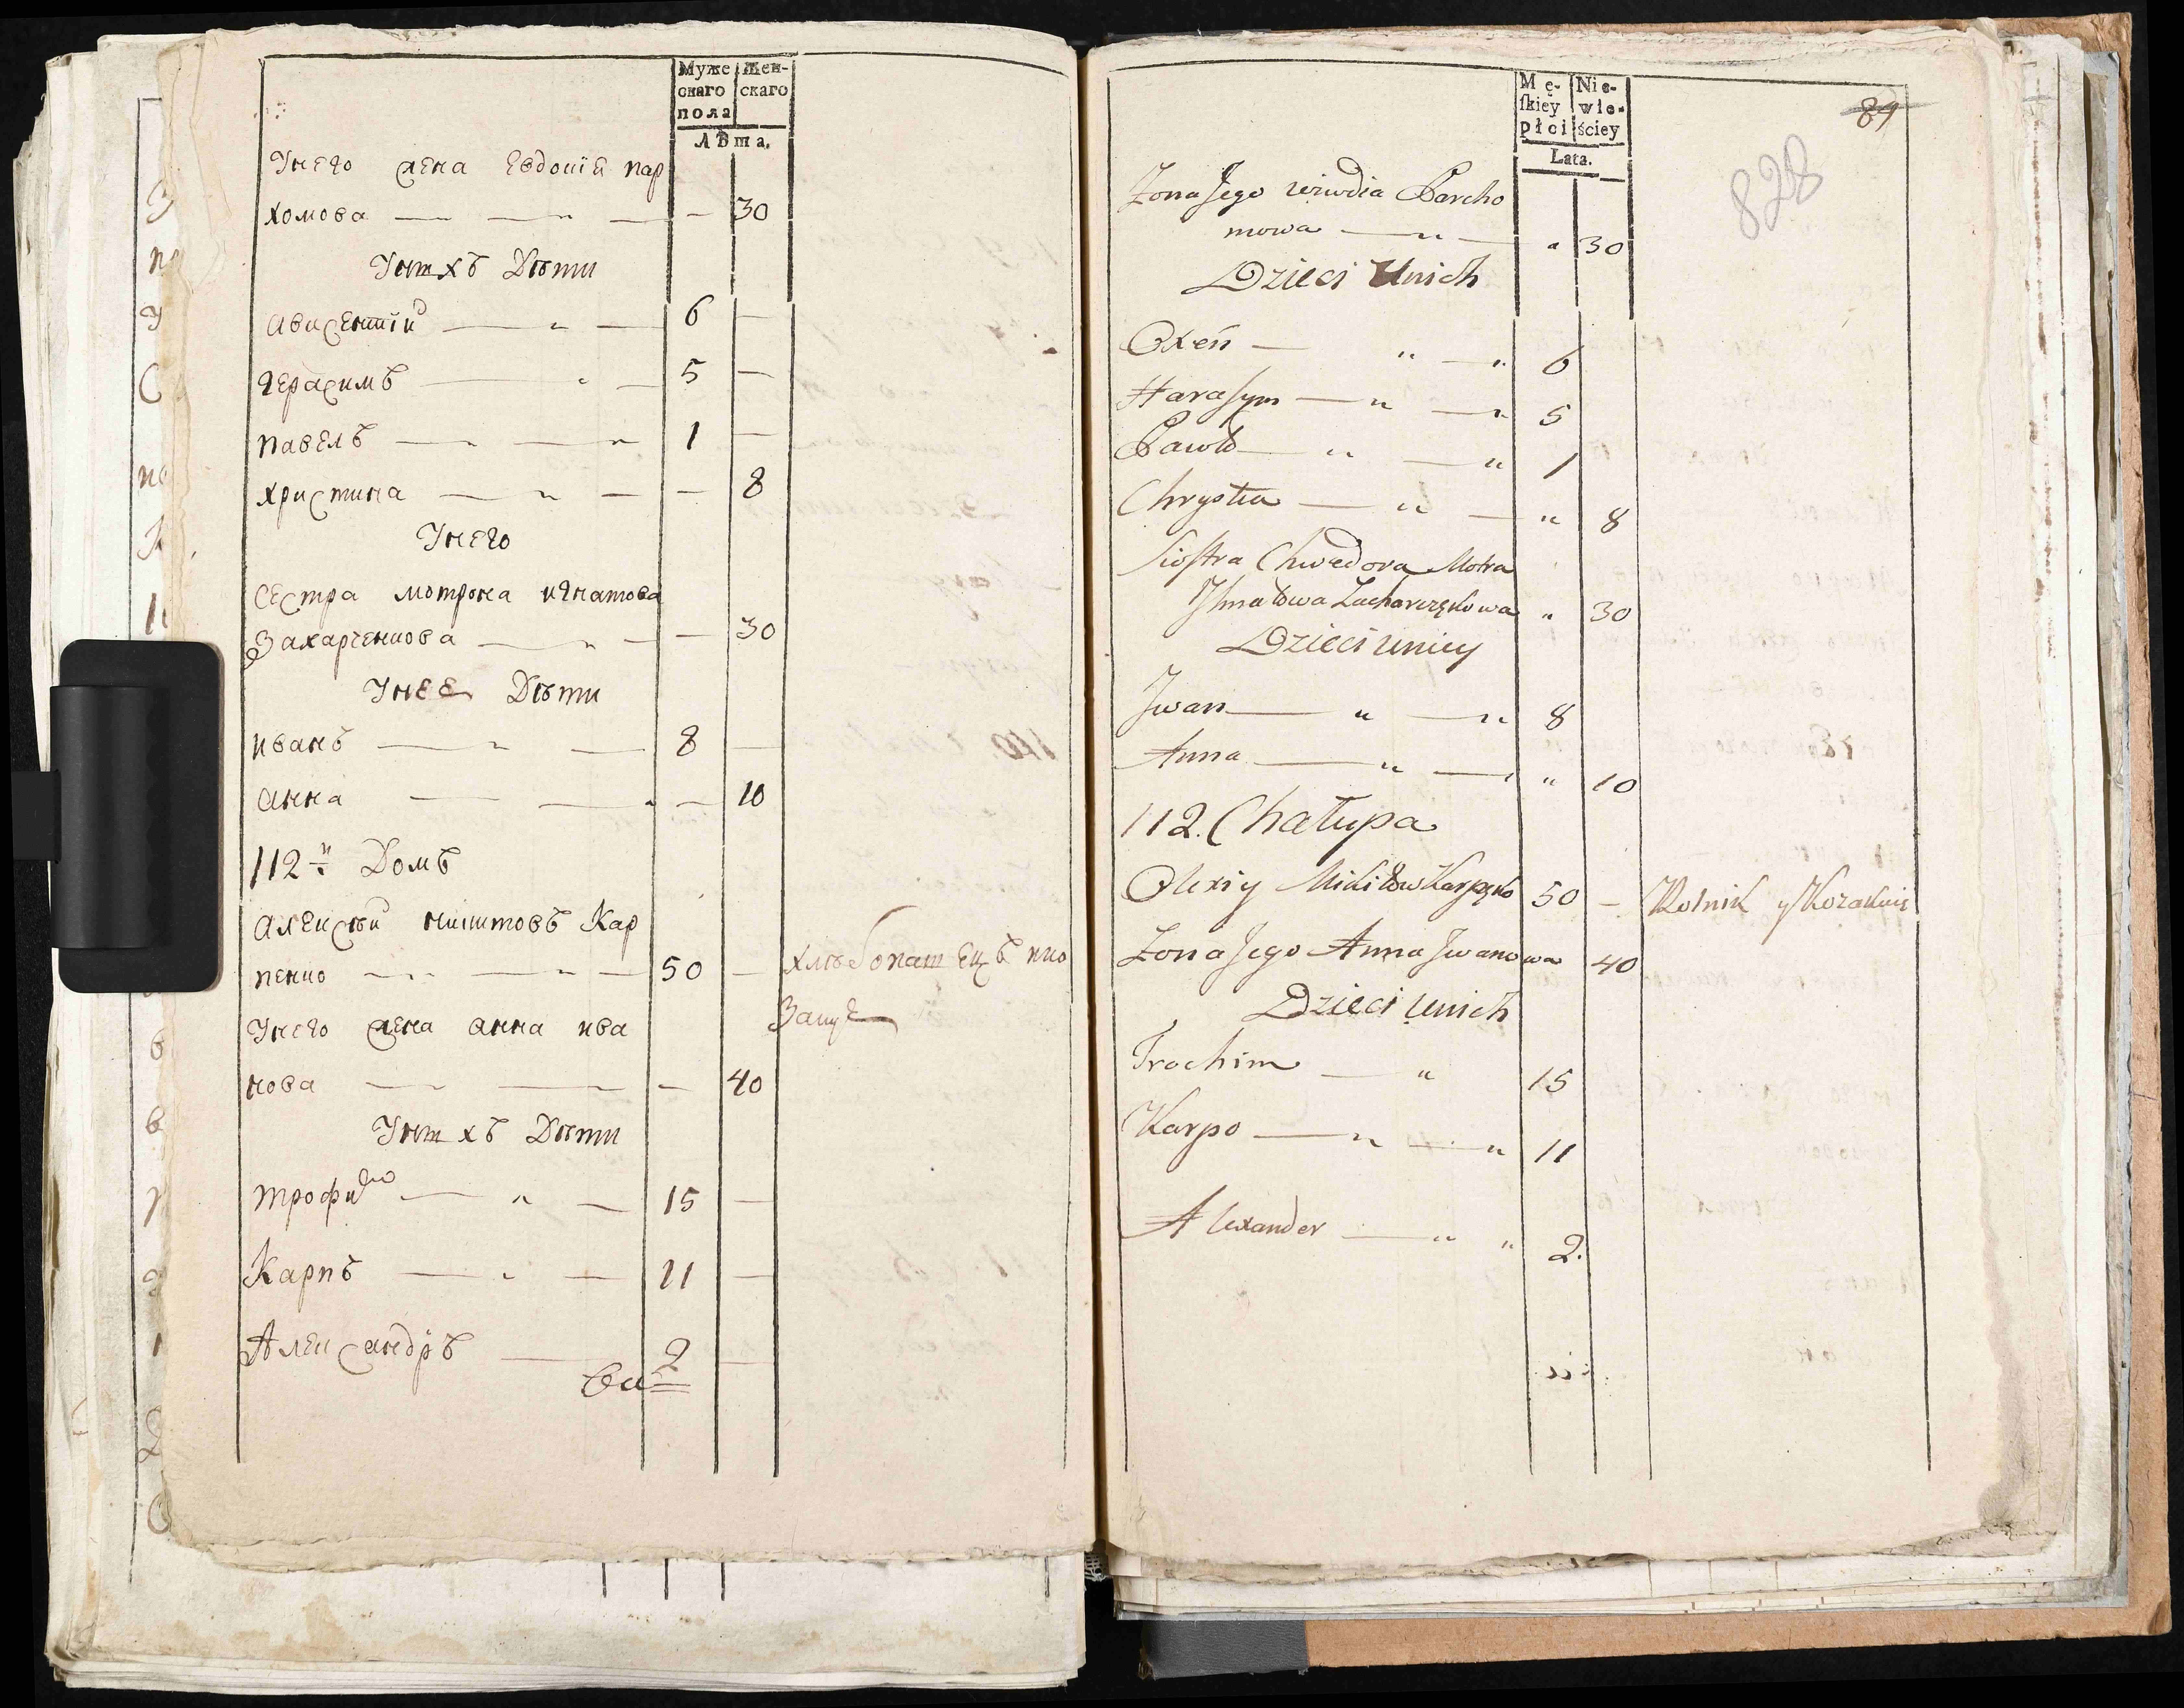 Муже
скаго
пола
Жен-
скаго
Лѣта.
Унего жена Евдокія пар
хомова — — — — 30
Унихъ Дѣти
Авксентій — — 6 —
герасимъ — — 5 —
павелъ — — 1 —
христина — — — 8
Унего
сестра мотрона игнатова
Захарченкова — — — 30
Унее Дѣти
иванъ — — 8 —
анна — — — 10
112й Домъ
алексѣй никитовъ Кар
пенко — — 50 — хлѣбопашецъ и ко
заче
Унего жена анна ива
нова — — — 40
Унихъ Дѣти
трофим — — 15 —
Карпъ — — 11 —
Александръ — 2 —
Mę-
ſkiey
płci
Nie-
wie-
ściey
Lata.
84
828
Zona Jego wiwdia Parcho
mowa — „ — „ 30
Dzieci Unich
Oxeń — „ — „ 6
Haraſym — „ — „ 5
Pawło — „ — „ 1
Chrystia — „ — „ 8
Siostra Chwedora Motra
Ihnatowa Zacharczękowa „ 30
Dzieci uniey
Jwan — „ — „ 8
Anna — „ — „ 10
112. Chałupa
Olexiy Mikitow Karpęko 50 — Rolnik y Kozakuie
Zona Jego Anna Jwanowa 40
Dzieci Unich
Trochim — „ 15
Karpo — „ — „ 11
Alexander — „ „ 2.